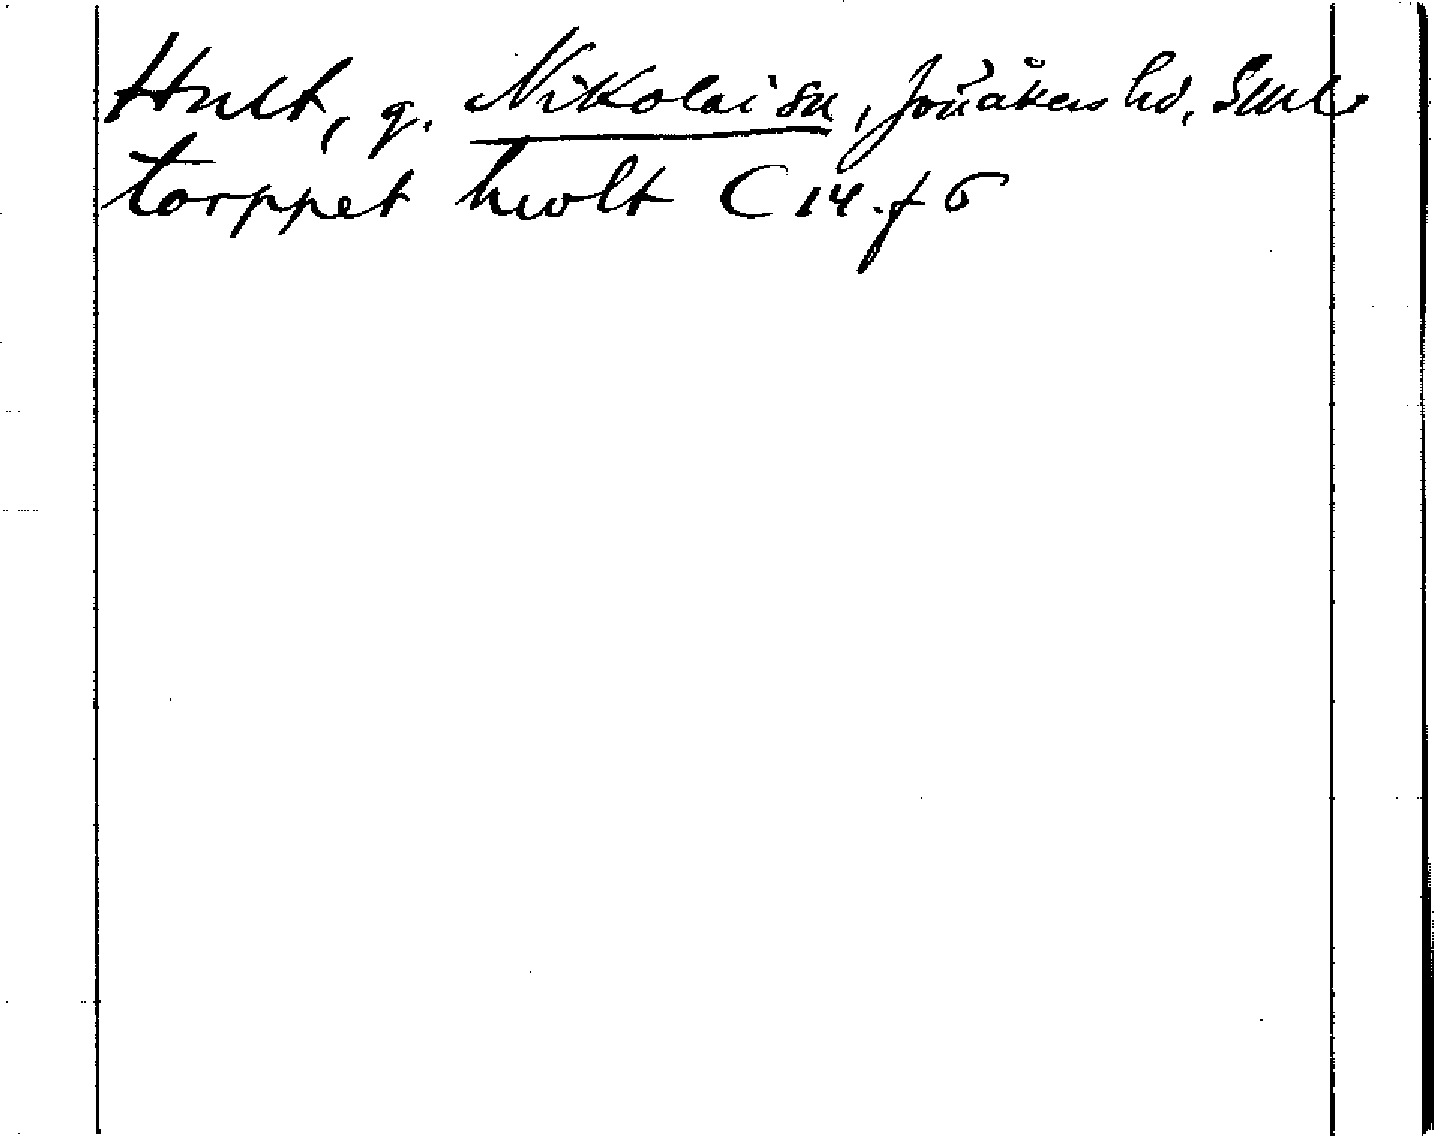 Hult, g. Nikolai sn, Jönåkers hd, Smld
torppet hwolt C 14. f 6